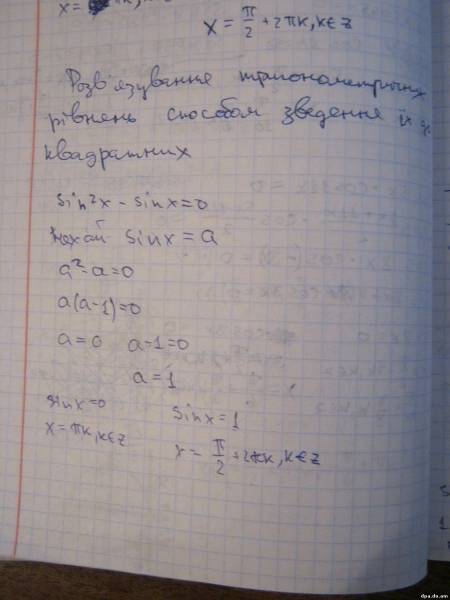 x=
x = π/2 + 2πk, k∈z
Розв'язування тригонометричних
рівнень способом зведення їх до
квадратних
sin²x - sinx=0
Нехай sinx = a
a²-a=0
a(a-1)=0
a=0 a-1=0
a=1
sinx=0 sinx=1
x=πk, k∈z x= π/2 +2πk, k∈z
s
1
dpa.do.am